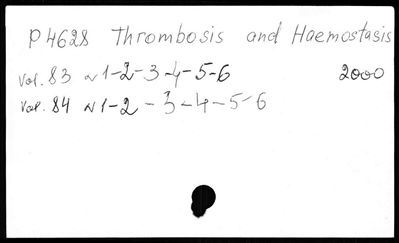 P4628 Thrombosis and Haemostasis
Vol. 83 N 1-2-3-4-5-6 2000
Vol. 84 N 1-2-3-4-5-6